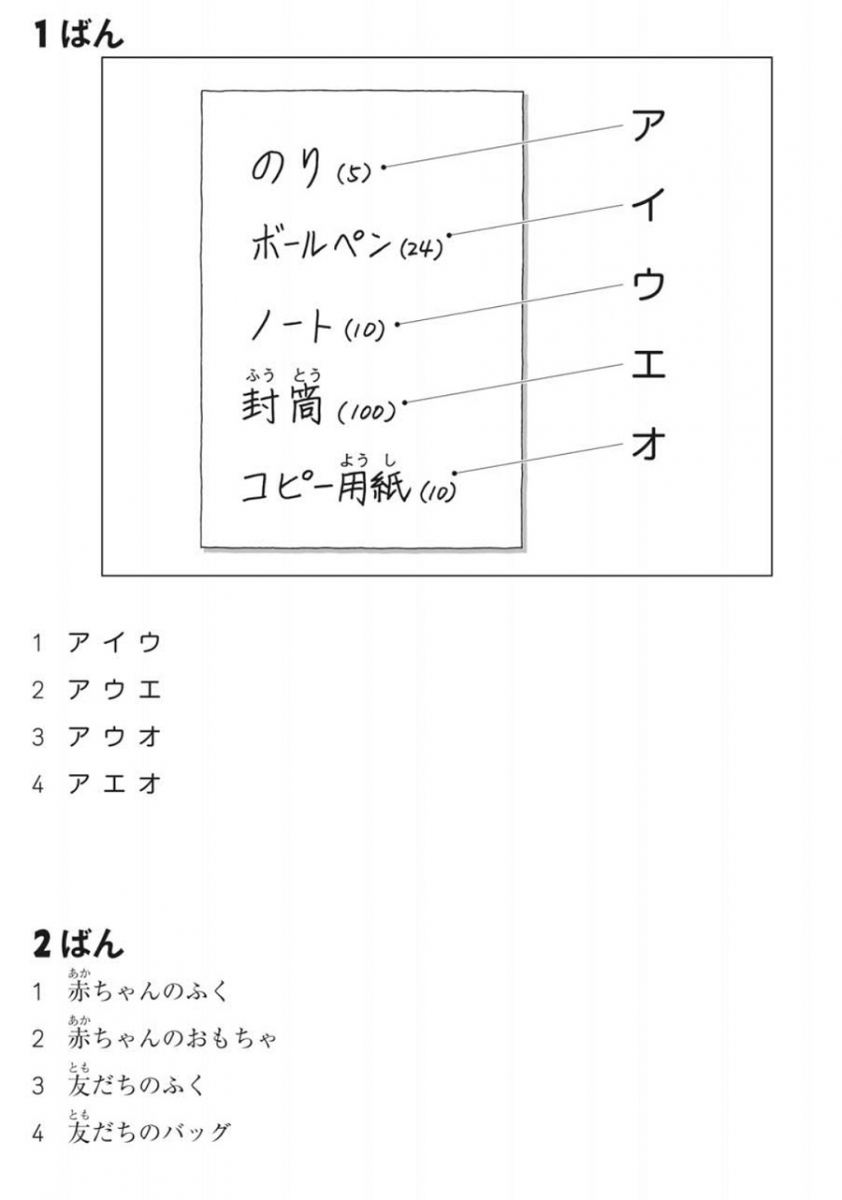 1 ばん
のり (5) ア
ボールペン (24) イ
ノート (10) ウ
ふう とう
封筒 (100) エ
よう し
コピー用紙 (10) オ
1 ア イ ウ
2 ア ウ エ
3 ア ウ オ
4 ア エ オ
2 ばん
あか
1 赤ちゃんのふく
あか
2 赤ちゃんのおもちゃ
とも
3 友だちのふく
とも
4 友だちのバッグ